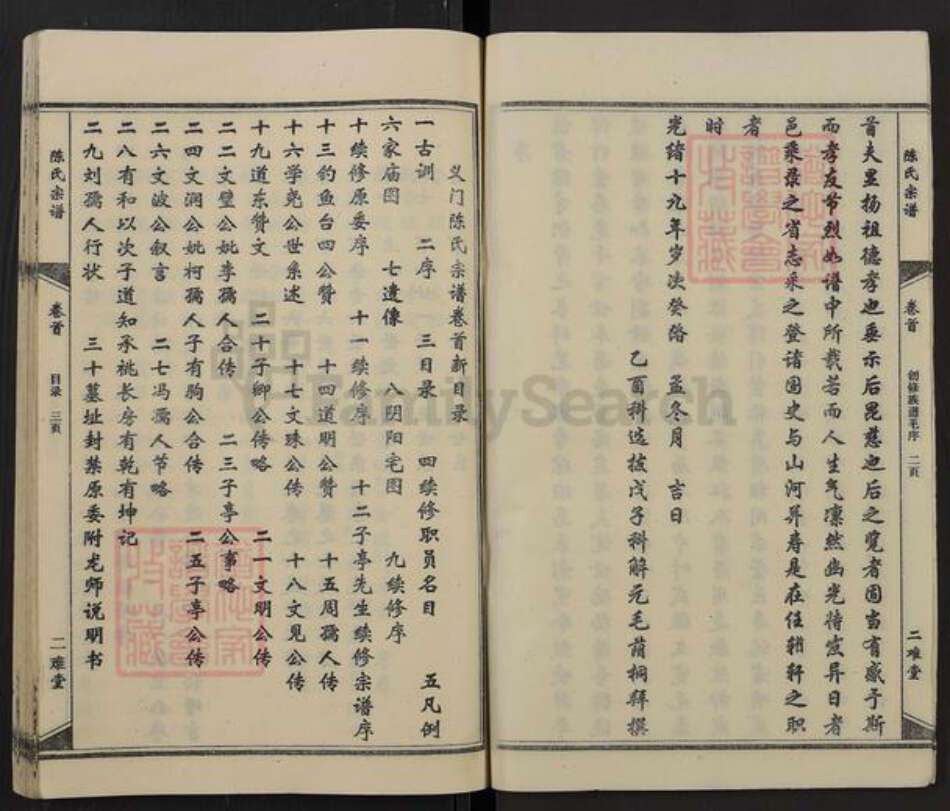 陈氏宗谱
卷首
创修族谱毛序 二页
二难堂
首夫显扬祖德孝也垂示后昆慈也后之览者固当有感于斯
而孝友节烈如谱中所载若而人生气凛然幽光待发异日者
邑乘录之省志采之登诸国史与山河并寿是在任輶轩之职
者
时
光绪十九年岁次癸 孟冬月 吉日
乙酉科选拔戊子科解元毛荫桐拜撰
义门陈氏宗谱卷首新目录
一古训 二序一 三目录 四续修职员名目 五凡例
六家庙图 七遗像 八阴阳宅图 九续修序
十续修原委序 十一续修序 十二子亭先生续修宗谱序
十三钓鱼台四公赞 十四道明公赞 十五周孺人传
十六学尧公世系述 十七文珠公传 十八文见公传
十九道东赞文 二十子卿公传略 二一文明公传
二二文璧公妣李孺人合传 二三子亭公事略
二四文澜公妣柯孺人子有驹公合传 二五子亭公传
二六文波公叙言 二七冯孺人节略
二八有和以次子道知承祧长房有乾有坤记
二九刘孺人行状 三十墓址封禁原委附龙师说明书
陈氏宗谱
卷首
目录 三页
二难堂
FamilySearch